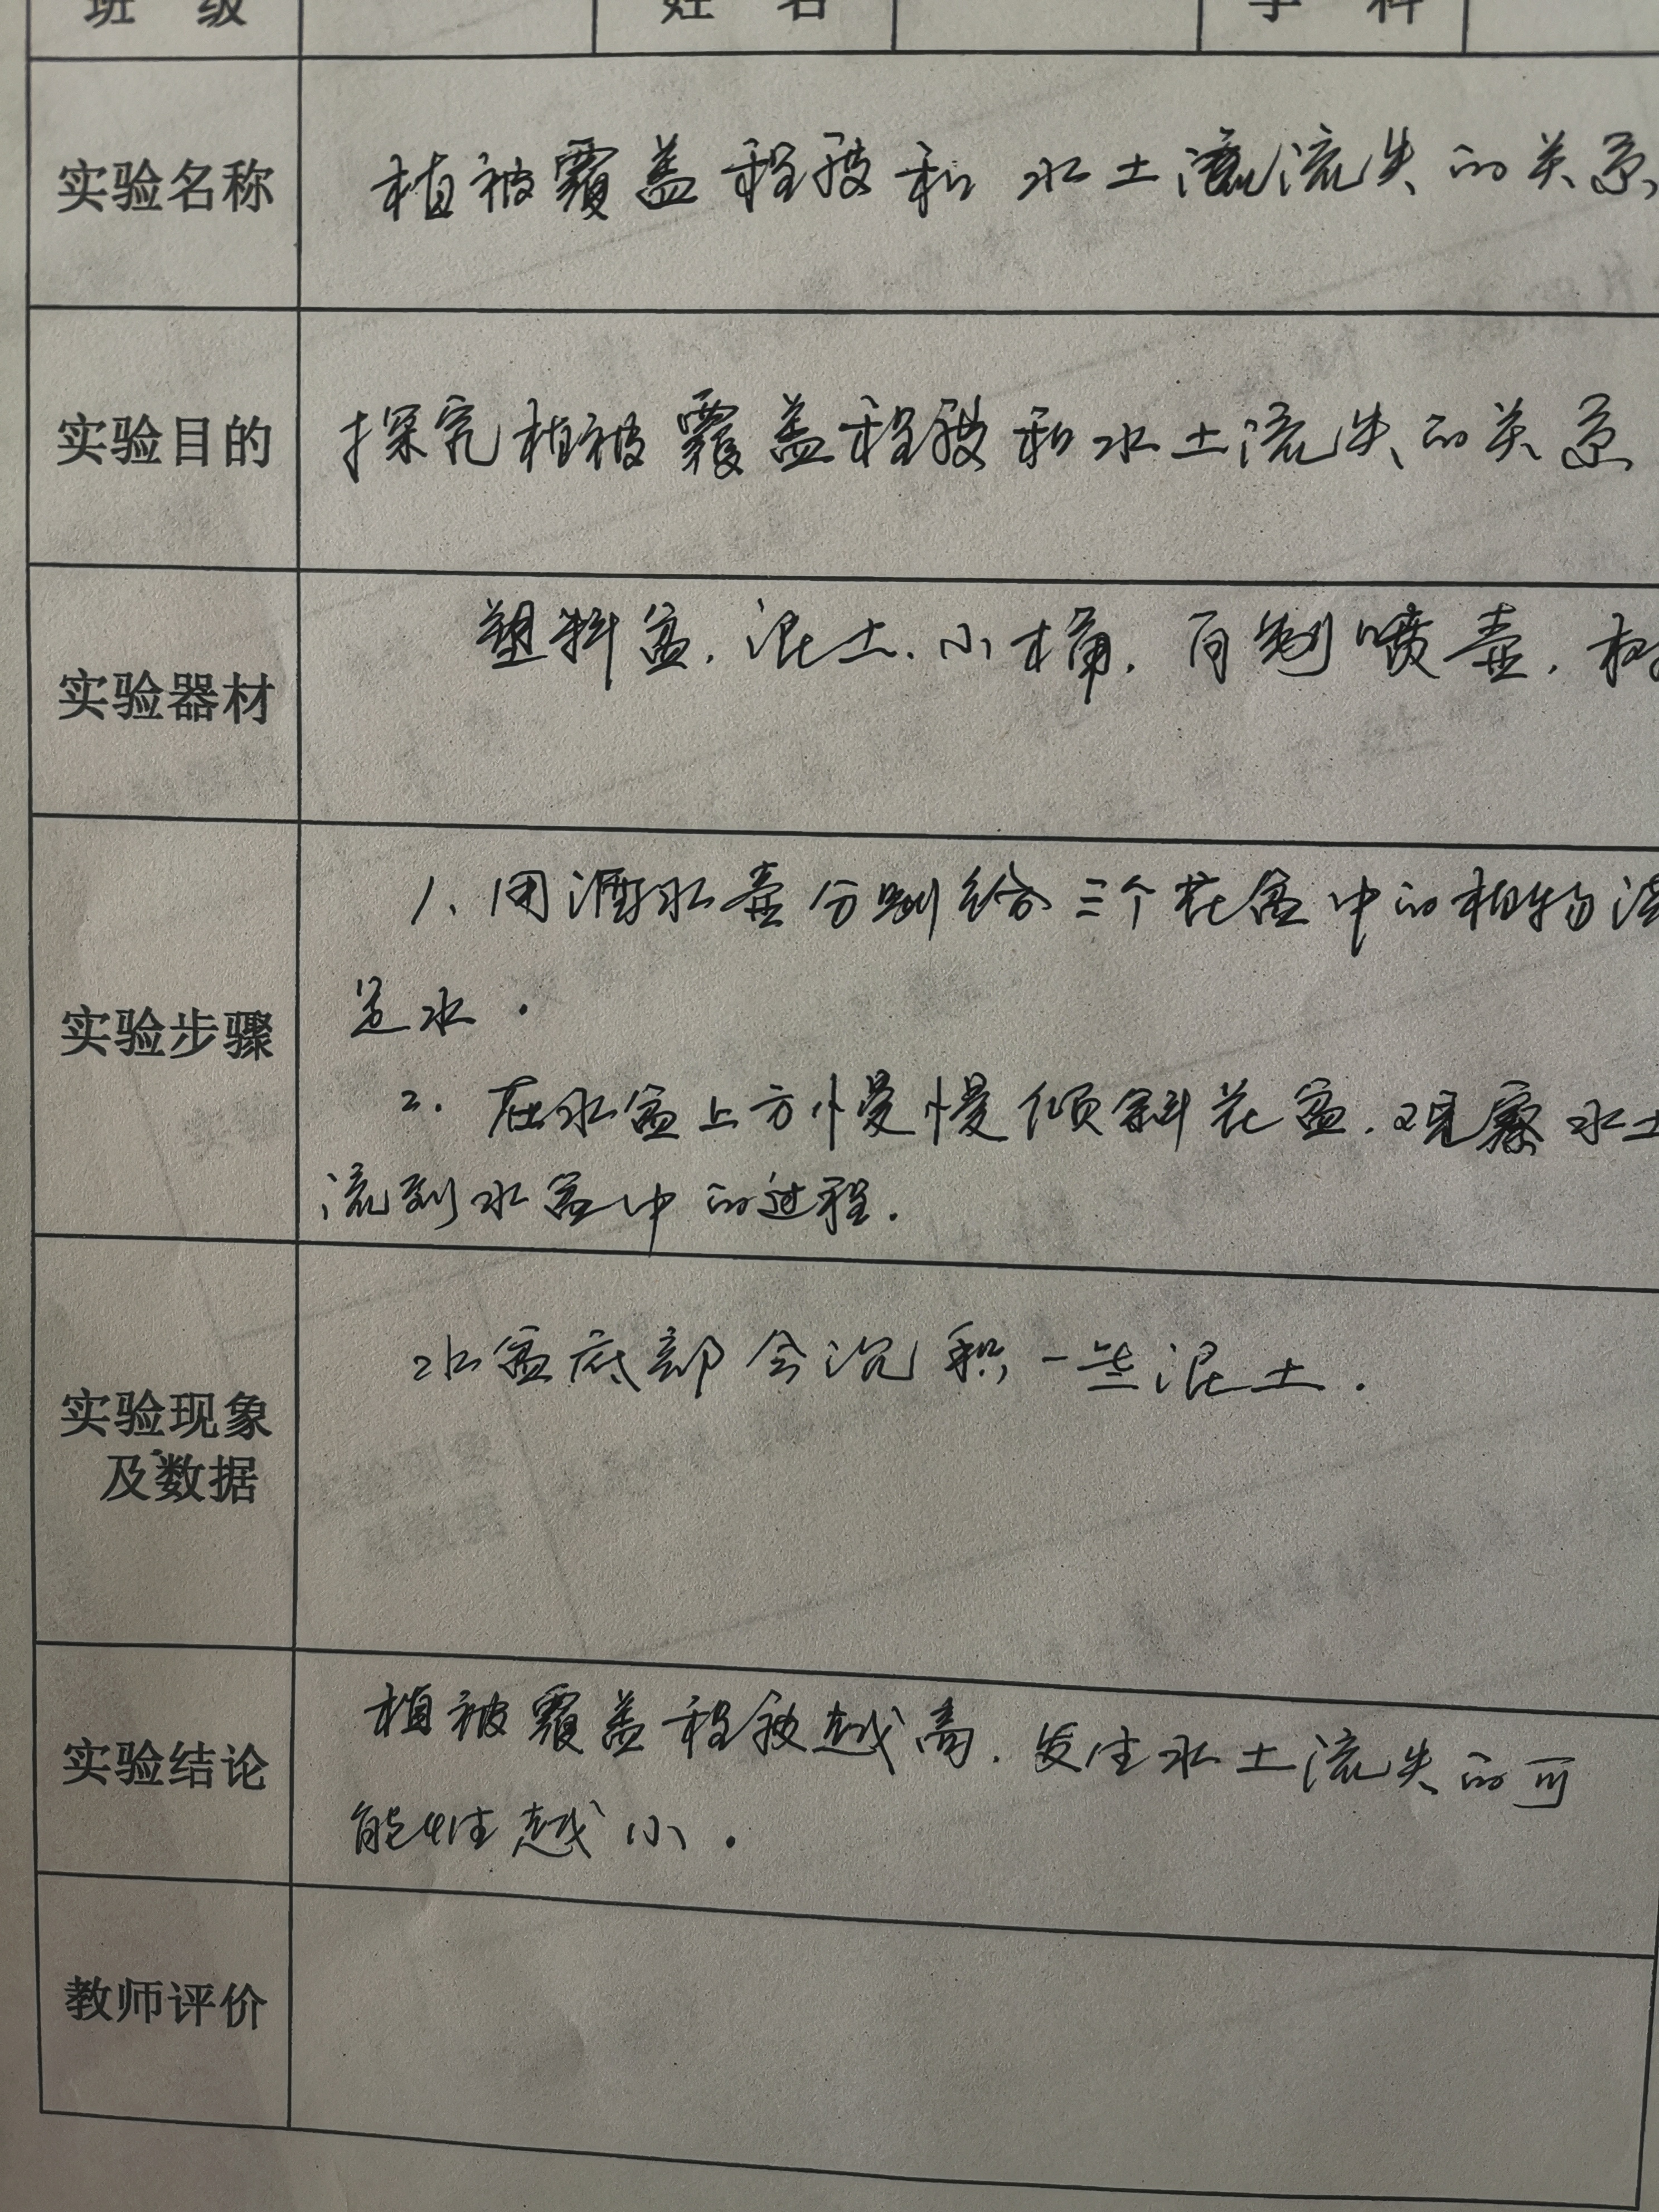 班 级 姓 名 学 科
实验名称 植被覆盖程度和水土流流失的关系
实验目的 探究植被覆盖程度和水土流失的关系
实验器材 塑料盆、混土、小桶、自制喷壶、
实验步骤 1、用洒水壶分别给三个花盆中的植物浇
适水.
2. 在水盆上方慢慢倾斜花盆.观察水土
流到水盆中的过程.
实验现象
及数据
水盆底部会沉积一些混土.
实验结论 植被覆盖程度越高.发生水土流失的可
能性越小.
教师评价